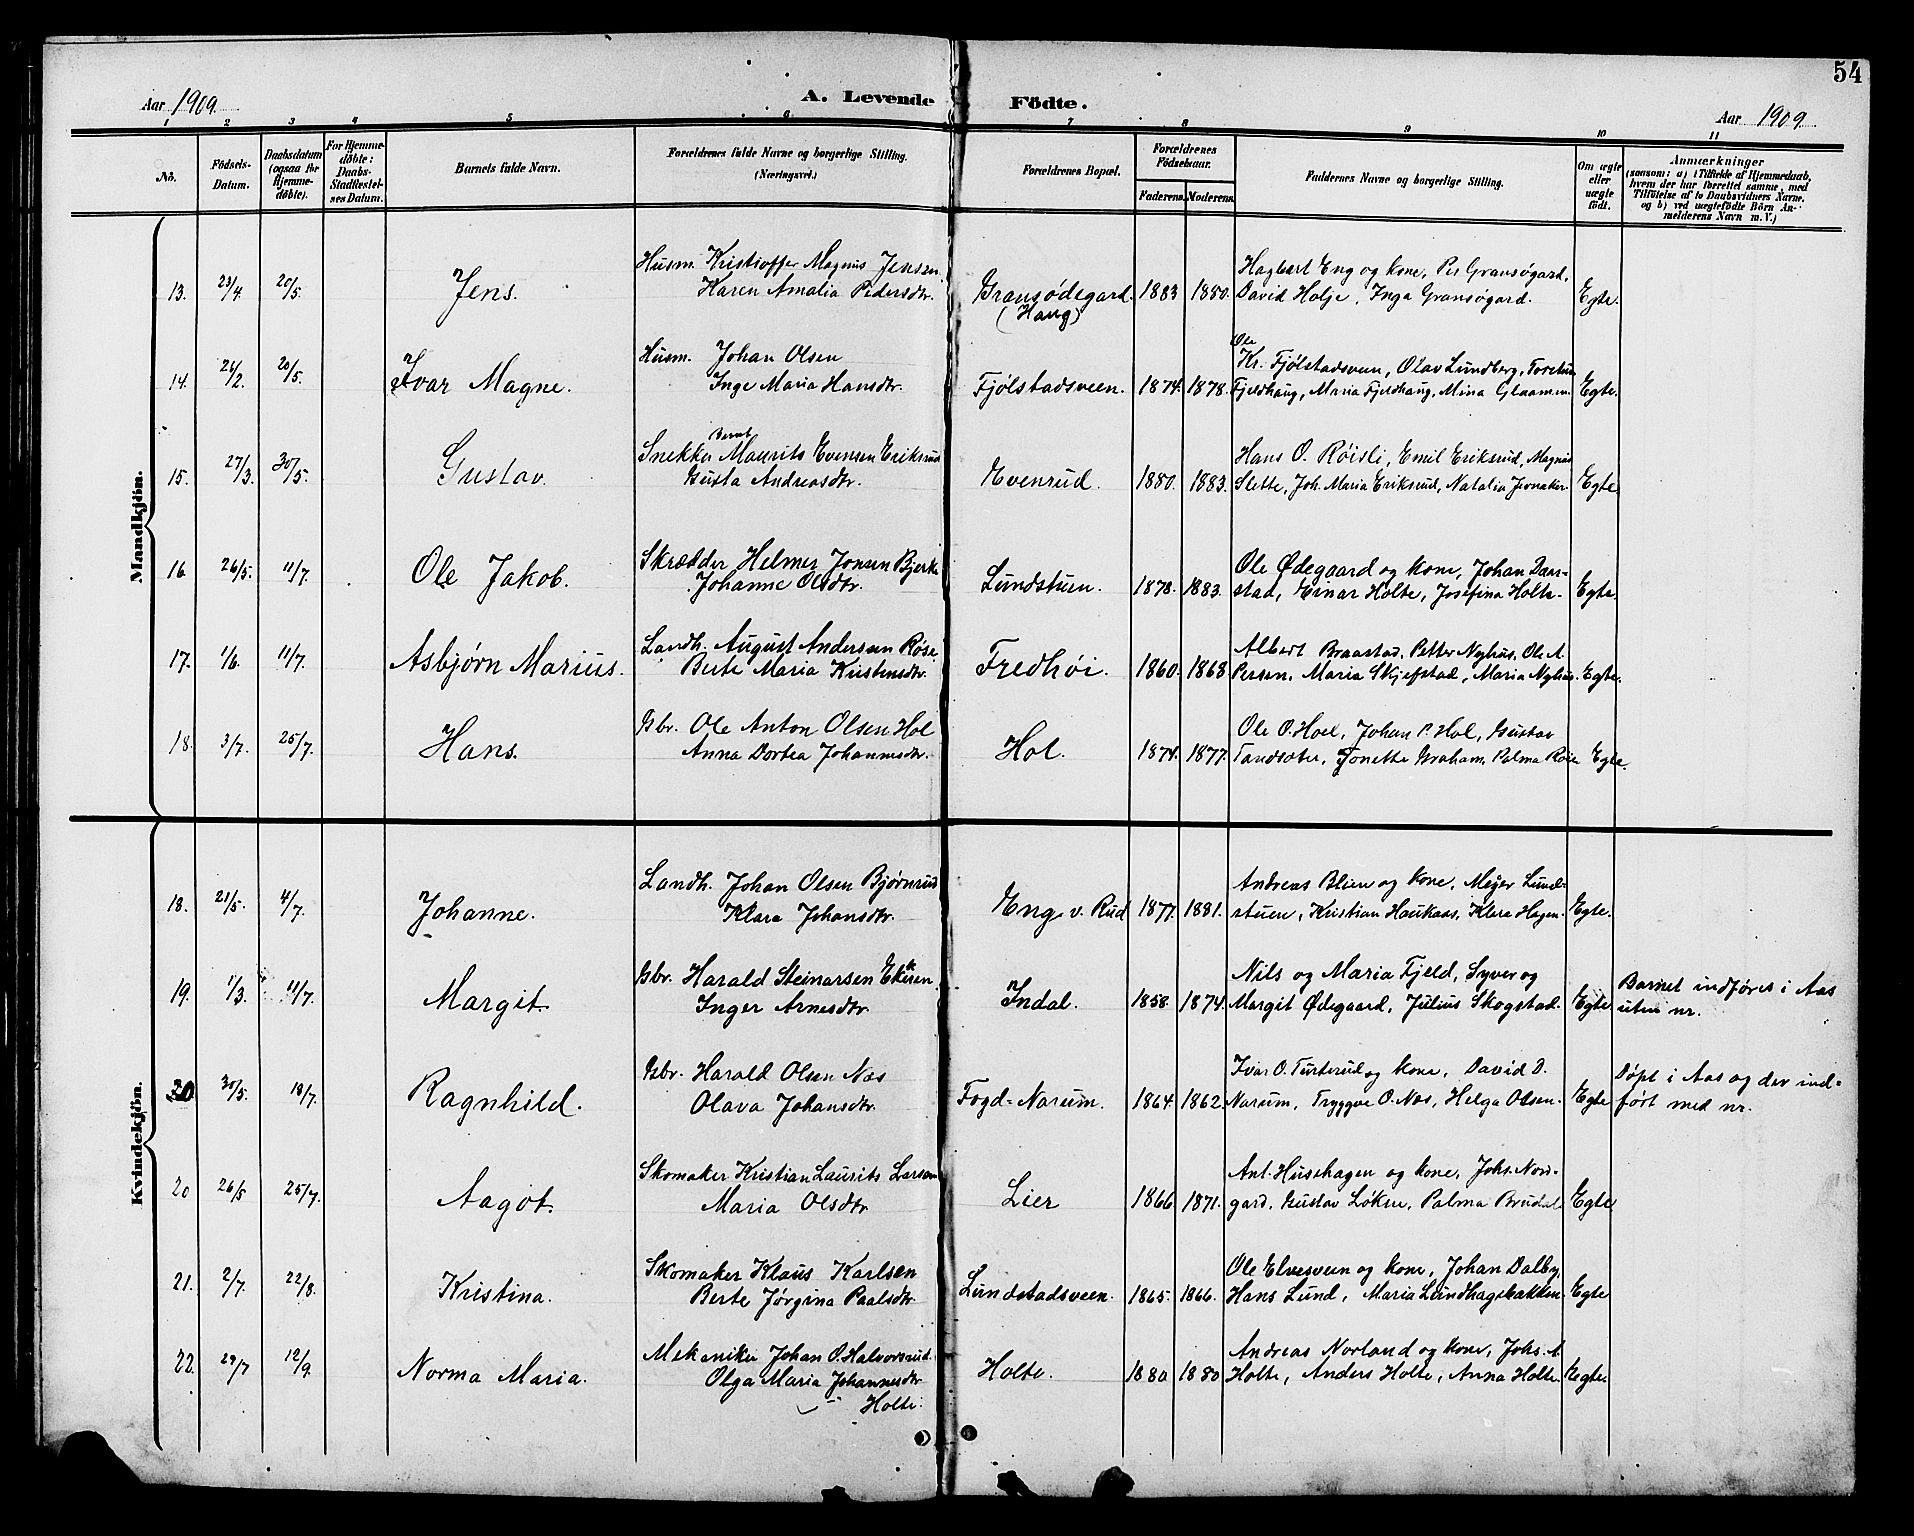 54
Aar 1909.
A. Levende Födte.
Aar 1909.
1 2 3 4 5 6 7 8 9 10 11
No.
Födsels-Datum.
Daabsdatum (ogsaa for Hjemme-döbte).
For Hjemme-döbte: Daabs-Stadfæstel-ses Datum.
Barnets fulde Navn.
Forældrenes fulde Navne og borgerlige Stilling. (Næringsvei.)
Forældrenes Bopæl.
Forældrenes Födselsaar.
Faderens. Moderens.
Faddernes Navne og borgerlige Stilling.
Om ægte eller uægte födt.
Anmærkninger
(saasom: a) i Tilfælde af Hjemmedaab, hvem der har forrettet samme, med Tilföielse af to Daabsvidners Navne, og b) ved uægtefödte Börn An-melderens Navn m. V.)
Mandkjön.
13. 23/4 20/5. Jens. Husm. Kristoffer Magnus Jensen
Karen Amalia Pedersdtr. Gransødegard. (Haug) 1883 1880. Hagbart Eng og kone, Per Gransøgard,
David Holje, Inga Gransøgard. Egte.
14. 26/2. 20/5. Ivar Magne. Husm. Johan Olsen
Inge Maria Hansdtr. Fjølstadsveen. 1874. 1878. Ole
Kr. Fjølstadsveen, Olav Lundberg, Torstein
Fjeldhaug, Maria Fjeldhaug, Mina Glaamen. Egte.
15. 27/3. 30/5. Gustav. Bernt
Snekker Maurits Evensen Eriksrud
Gusta Andreasdtr. Evenrud. 1880. 1883. Hans O. Røisli, Emil Eriksrud, Magnus
Slette, Joh. Maria Eriksrud, Natalia Jevnaker. Egte
16 26/5. 11/7. Ole Jakob. Skrædder Helmer Jonsen Bjerke
Johanne Olsdtr. Lundstuen. 1878. 1883. Ole Ødegaard og kone, Johan Daar-
stad, Einar Holte, Josefina Holte. Egte.
17. 1/6. 11/7. Asbjørn Marius. Landh. August Andersen Røse
Berte Maria Kristensdtr. Fredhøi. 1860. 1868 Albert Braastad, Petter Nyhus, Ole A.
Persen, Maria Skjefstad, Maria Nyhus. Egte.
18. 3/7. 25/7. Hans. Gbr. Ole Anton Olsen Hol
Anna Dortea Johannesdtr. Hol. 1874. 1877. Ole O. Hoel, Johan P. Hol, Gustav
Tandsæter, Jonette Graham, Palma Røise Egte.
Kvindekjön.
18. 21/5. 4/7. Johanne. Landh. Johan Olsen Bjørnrud
Klara Johansdtr. Eng v. Rud 1877. 1881. Andreas Blien og kone, Meyer Lund-
stuen, Kristian Haukaas, Klara Hagen. Egte.
19. 1/3. 11/7. Margit. Gbr. Harald Steinarsen Ekeren
Inger Arnesdtr. Indal. 1858. 1874. Nils og Maria Fjeld, Syver og
Margit Ødegaard, Julius Skogstad. Egte Barnet indføres i Aas
uten nr.
20 30/5. 18/7. Ragnhild. Gbr. Harald Olsen Næs
Olava Johansdtr. Fogd-Narum. 1864. 1862. Ivar O. Turterud og kone, David D.
Narum, Tryggve O. Næs, Helga Olsen. Egte Døpt i Aas og der ind-
ført med nr.
20 26/5 25/7. Aagot. Skomaker Kristian Laurits Larsen
Maria Olsdtr. Lier 1866 1871. Ant. Husehagen og kone, Johs. Nor-
gard, Gustav Løken, Palma Brudal Egte
21. 2/7. 22/8. Kristina. Skomaker Klaus Karlsen
Berte Jørgina Paalsdtr. Lundstadsveen. 1865. 1866. Ole Elvesveen og kone, Johan Dalby,
Hans Lund, Maria Lundhagsbakken. Egte
22. 29/7 12/9. Norma Maria. Mekaniker Johan O. Halvorsrud
Olga Maria Johannesdtr.
Holte. Holte. 1880 1880 Andreas Norland og kone, Johs. A.
Holte, Anders Holte, Anna Holte. Egte